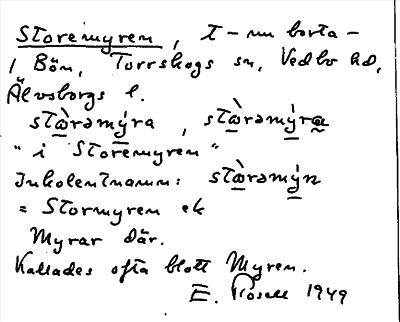 Storemyren, t – nu borta –
i Bön, Torrskogs sn, Vedbo hd,
Älvsborgs l.
stɷ̀rəmýra, stɷ̀rəmýra
"i Storemyren"
Inkolentnamn: stɷ̀rəmýn
= Stormyren ek
Myrar där.
Kallades ofta blott Myren.
E. Rosell 1949